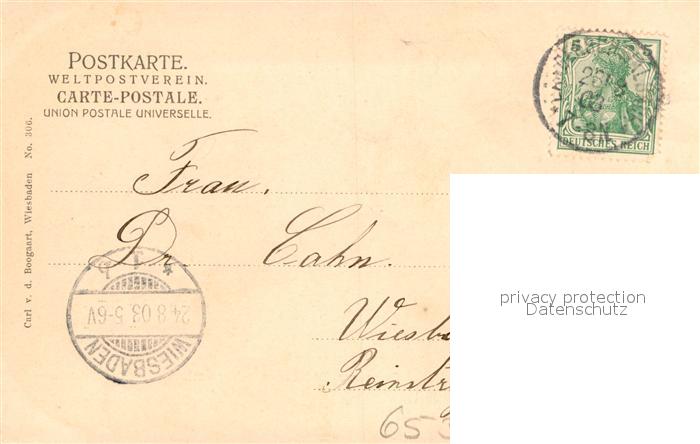 POSTKARTE.
WELTPOSTVEREIN.
CARTE-POSTALE.
UNION POSTALE UNIVERSELLE.
5 5
DEUTSCHES REICH
Carl v. d. Boogaart, Wiesbaden No. 306.
Frau.
Dr. Cahn.
WIESBADEN
24.8.03.5-6V.
* 1 b
Wiesb
Reinstr
653
privacy protection
Datenschutz